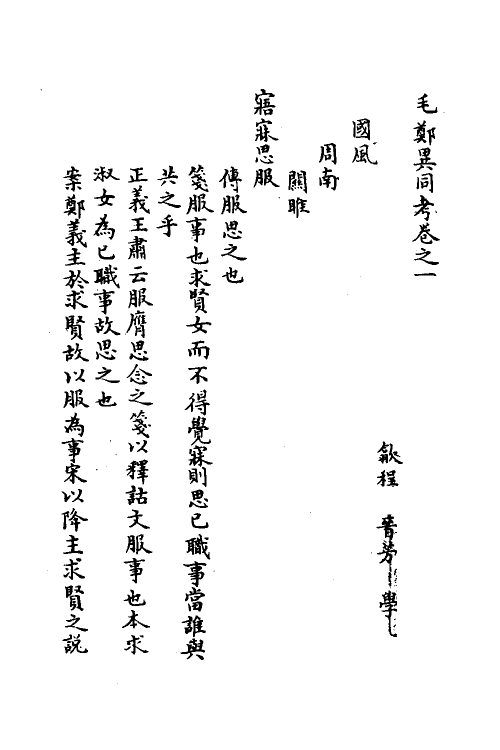 毛鄭異同考卷之一
歙程 晉芳 學
國風
周南
關雎
寤寐思服
傳服思之也
箋服事也求賢女而不得覺寐則思已職事當誰與
共之乎
正義王肅云服膺思念之箋以釋詁文服事也本求
淑女為已職事故思之也
案鄭義主於求賢故以服為事宋以降主求賢之說